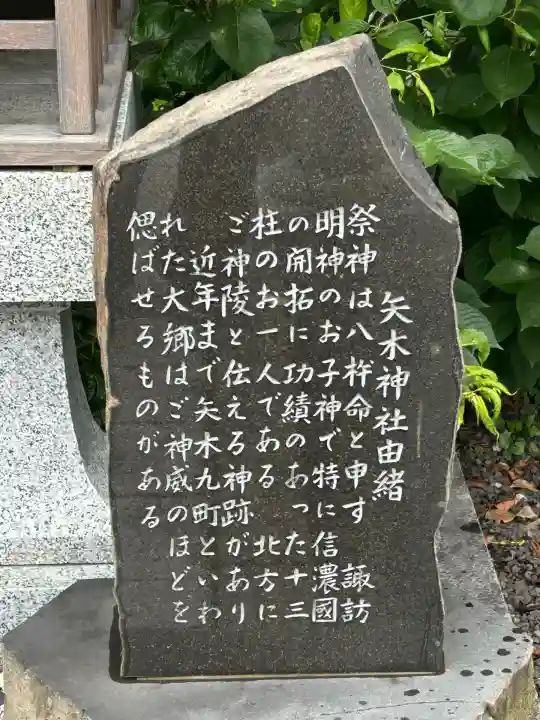 矢木神社由緒
祭神は八杵命と申す 諏訪
明神のお子神で特に信濃國
の開拓に功績のあった十三
柱のお一人である 北方に
ご神陵と伝える神跡があり
近年まで矢木九町といわ
れた大郷はご神威のほどを
偲ばせるものがある